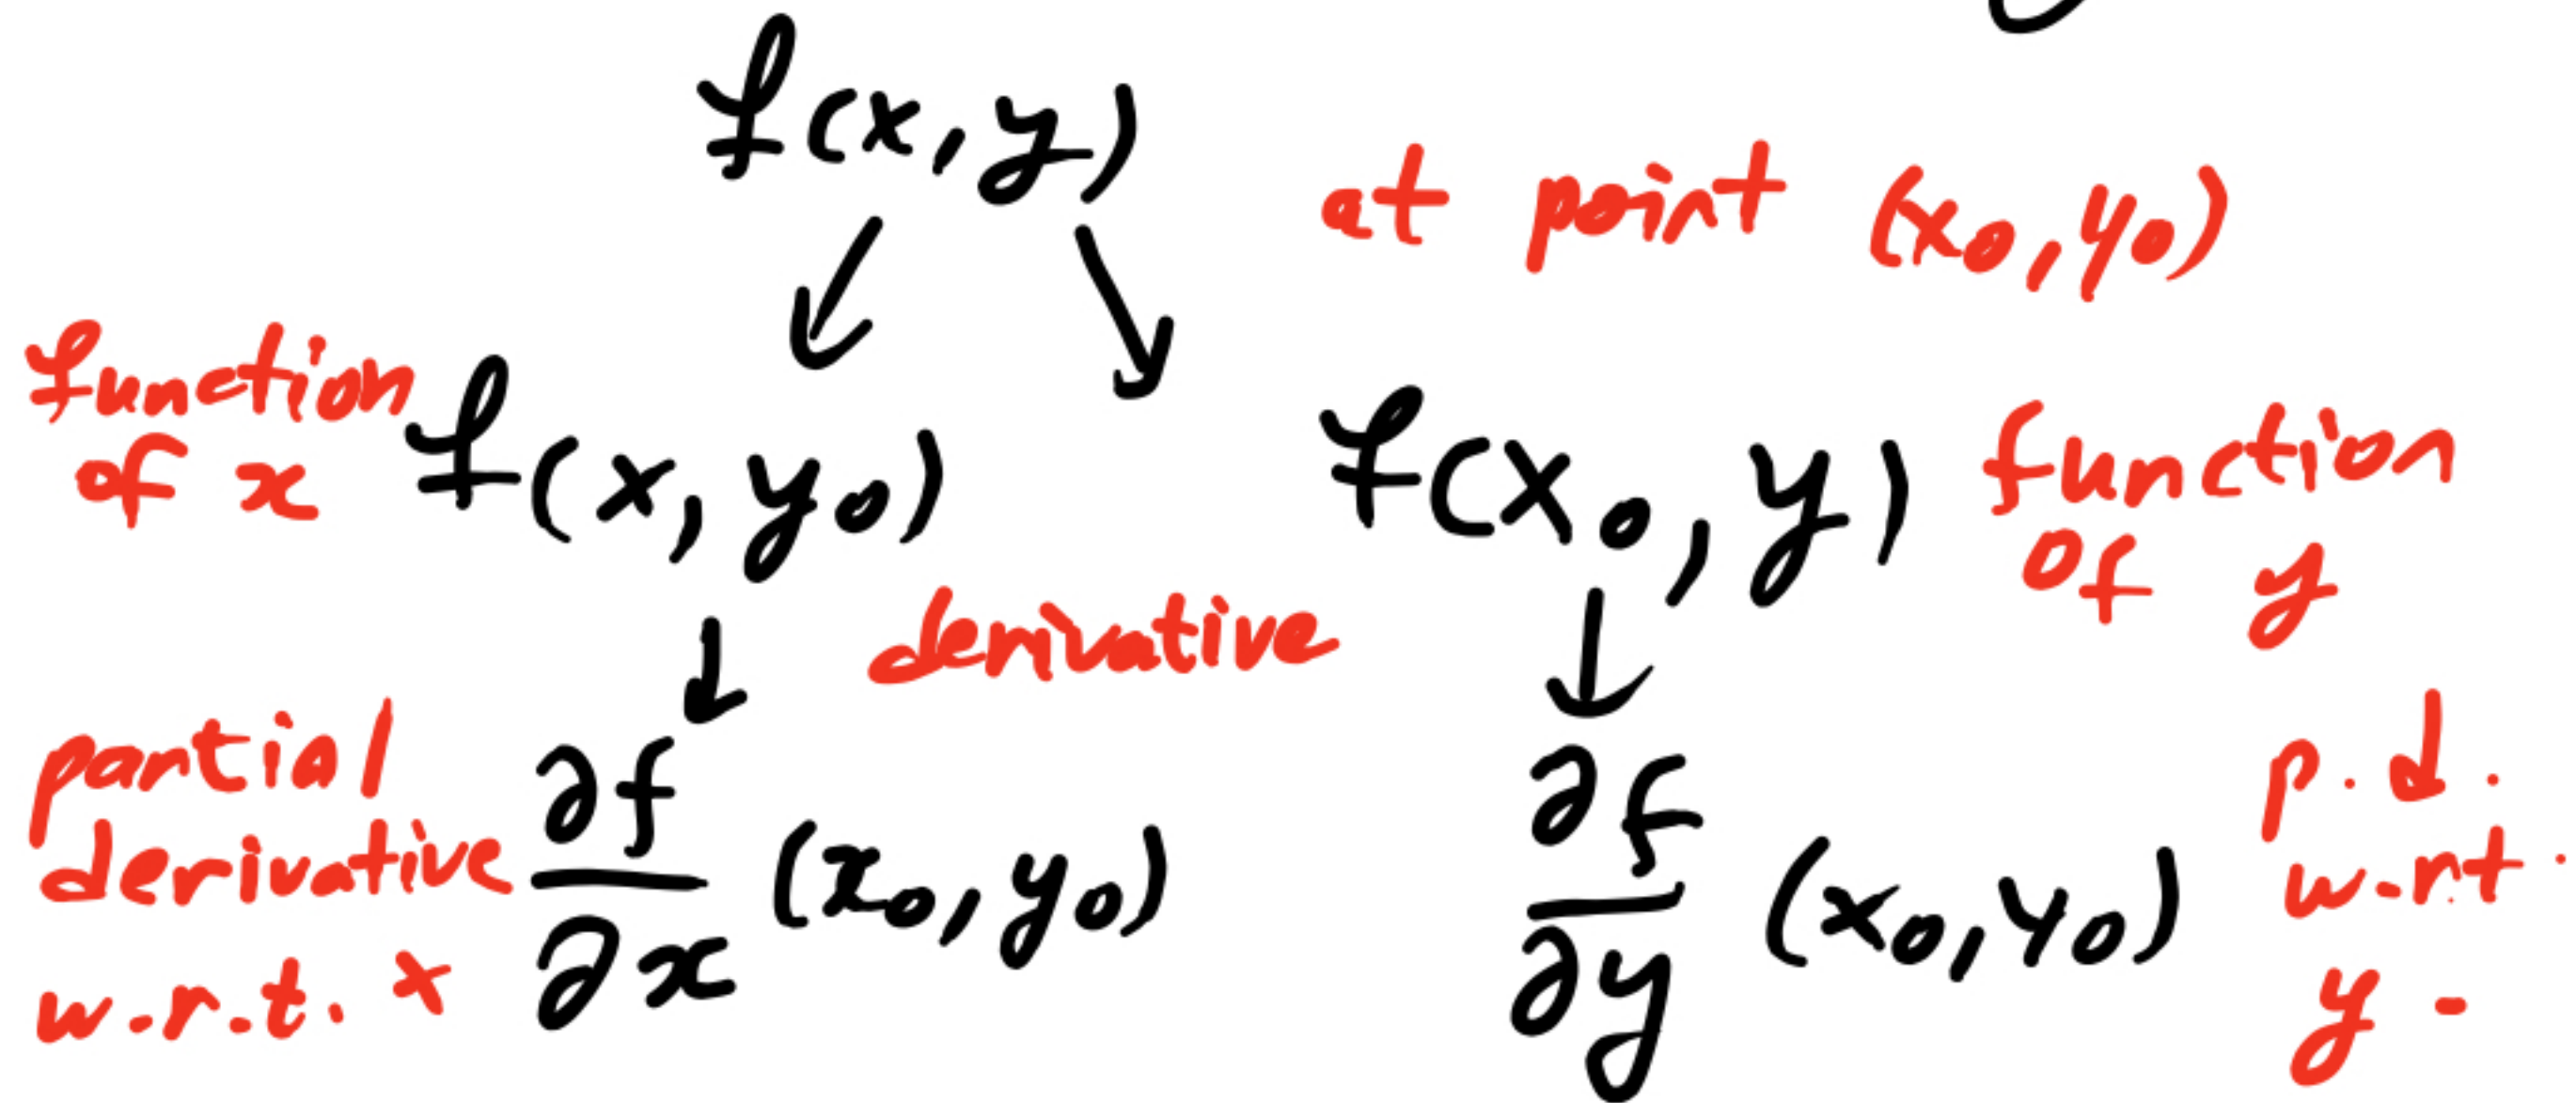 f(x,y)
at point (x₀,y₀)
function
of x
f(x,y₀)
f(x₀,y)
function
of y
derivative
partial
derivative
w.r.t. x
∂f/∂x (x₀,y₀)
∂f/∂y (x₀,y₀)
p.d.
w.r.t.
y.